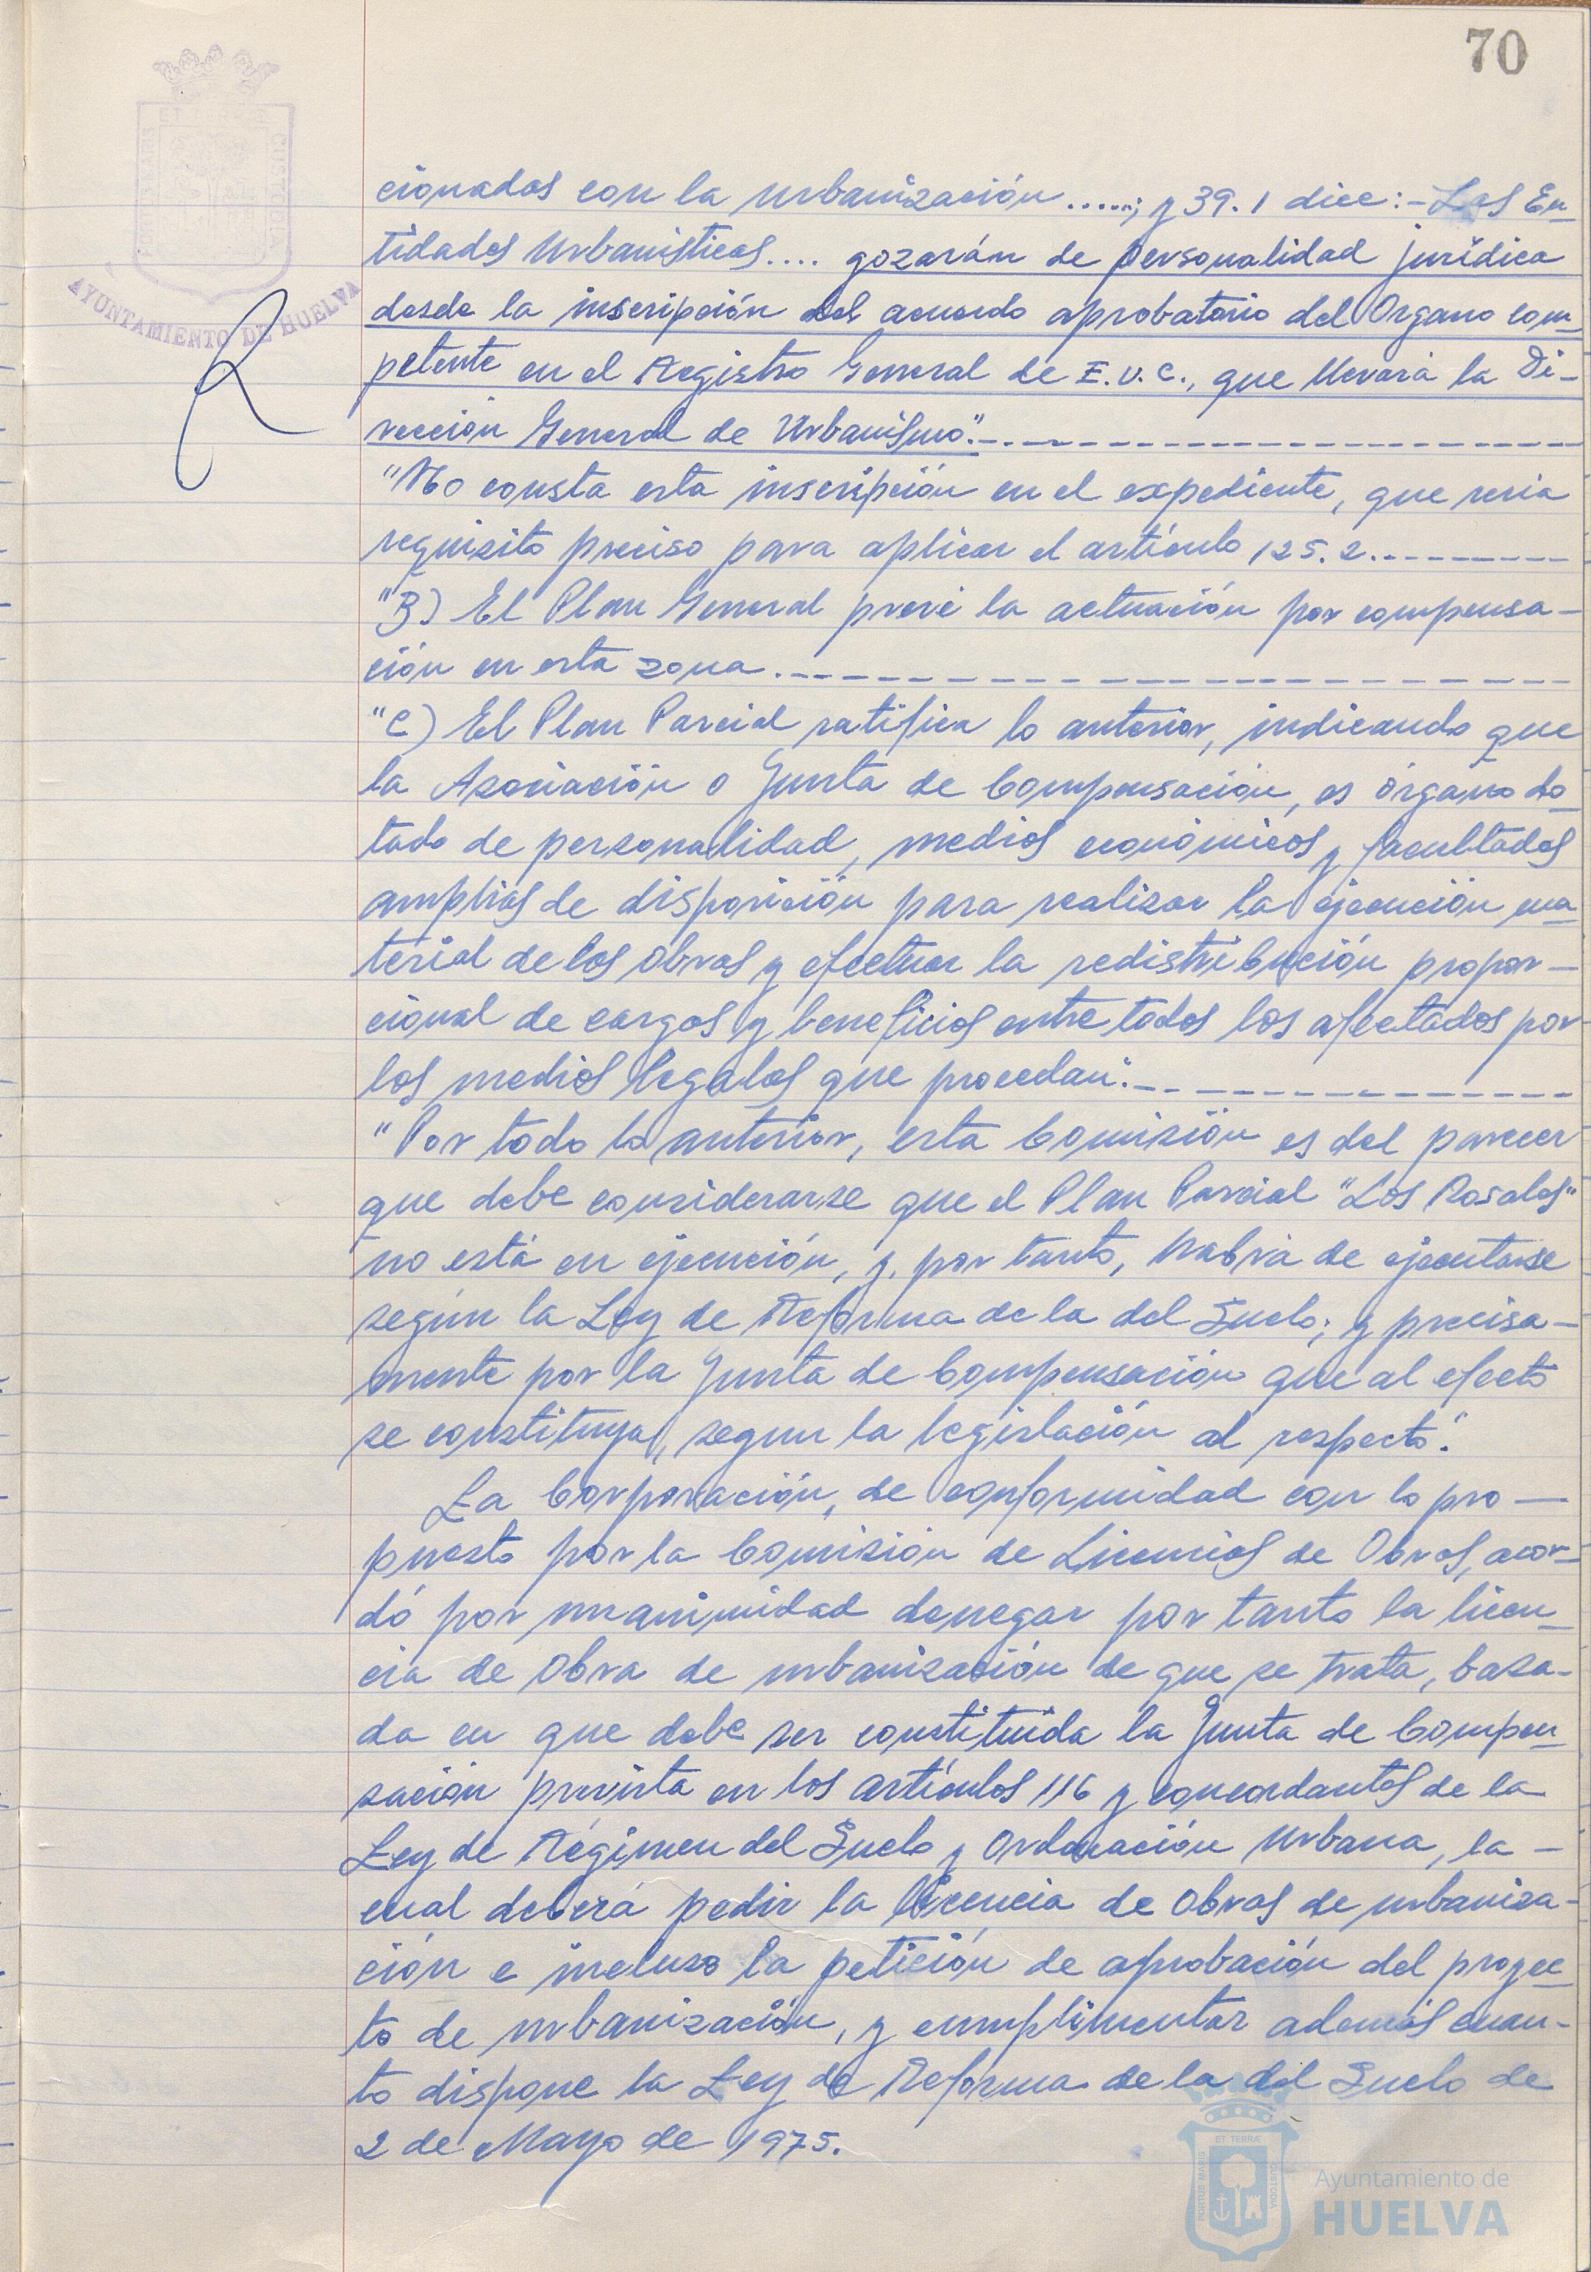 70
PORTUS MARIS ET TERRAE CUSTODIA
AYUNTAMIENTO DE HUELVA
cionadas con la urbanización .....; y 39.1 dice:- Las En-
tidades Urbanísticas.... gozarán de personalidad jurídica
desde la inscripción del acuerdo aprobatorio del Organo com-
petente en el Registro General de E.U.C., que llevará la Di-
rección General de Urbanismo".-
"No consta esta inscripción en el expediente, que seria
requisito preciso para aplicar el artículo 125.2.-
"B) El Plan General prevé la actuación por compensa-
ción en esta zona.-
"C) El Plan Parcial ratifica lo anterior, indicando que
la Asociación o Junta de Compensación, es órgano do-
tado de personalidad, medios económicos y facultades
amplias de disposición para realizar la ejecución ma-
terial de las obras y efectuar la redistribución propor-
cional de cargas y beneficios entre todos los afectados por
los medios legales que procedan".-
"Por todo lo anterior, esta Comisión es del parecer
que debe considerarse que el Plan Parcial "Los Rosales"
no está en ejecución, y, por tanto, habrá de ejecutarse
según la Ley de Reforma de la del Suelo; y precisa-
mente por la Junta de Compensación que al efecto
se constituya, segun la legislación al respecto".
La Corporación, de conformidad con lo pro-
puesto por la Comisión de Licencias de Obras, acor-
dó por unanimidad denegar por tanto la licen-
cia de obra de urbanización de que se trata, basa-
da en que debe ser constituida la Junta de Compen-
sación prevista en los artículos 116 y concordantes de la
Ley de Régimen del Suelo y Ordenación Urbana, la -
cual deberá pedir la licencia de obras de urbaniza-
ción e incluso la petición de aprobación del proyec-
to de urbanización, y cumplimentar además cuan-
to dispone la Ley de Reforma de la del Suelo de
2 de Mayo de 1975.
PORTUS MARIS ET TERRAE CUSTODIA
Ayuntamiento de
HUELVA